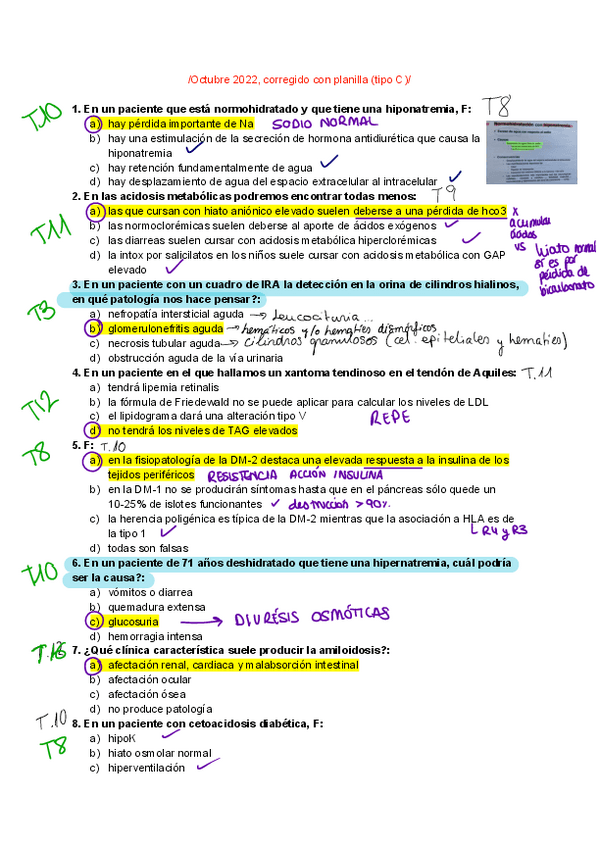 /Octubre 2022, corregido con planilla (tipo C )/
T.10
1. En un paciente que está normohidratado y que tiene una hiponatremia, F: T8
a) hay pérdida importante de Na SODIO NORMAL
b) hay una estimulación de la secreción de hormona antidiurética que causa la
hiponatremia
c) hay retención fundamentalmente de agua
d) hay desplazamiento de agua del espacio extracelular al intracelular
2. En las acidosis metabólicas podremos encontrar todas menos: T9
T11
a) las que cursan con hiato aniónico elevado suelen deberse a una pérdida de hco3 x
acumular
ácidos
vs
hiato normal
sí es por
pérdida de
bicarbonato
b) las normoclorémicas suelen deberse al aporte de ácidos exógenos
c) las diarreas suelen cursar con acidosis metabólica hiperclorémicas
d) la intox por salicilatos en los niños suele cursar con acidosis metabólica con GAP
elevado
T3
3. En un paciente con un cuadro de IRA la detección en la orina de cilindros hialinos,
en qué patología nos hace pensar?:
a) nefropatía intersticial aguda → leucocituria...
b) glomerulonefritis aguda → hemáticos y/o hematíes dismórficos
c) necrosis tubular aguda → cilindros granulosos (cel. epiteliales y hematíes)
d) obstrucción aguda de la vía urinaria
4. En un paciente en el que hallamos un xantoma tendinoso en el tendón de Aquiles: T.11
T12
a) tendrá lipemia retinalis
b) la fórmula de Friedewald no se puede aplicar para calcular los niveles de LDL
c) el lipidograma dará una alteración tipo V REPE
d) no tendrá los niveles de TAG elevados
T8
5. F: T.10
a) en la fisiopatología de la DM-2 destaca una elevada respuesta a la insulina de los
tejidos periféricos RESISTENCIA ACCIÓN INSULINA
b) en la DM-1 no se producirán síntomas hasta que en el páncreas sólo quede un
10-25% de islotes funcionantes destrucción >90%
c) la herencia poligénica es típica de la DM-2 mientras que la asociación a HLA es de
la tipo 1 LR4 y R3
d) todas son falsas
T10
6. En un paciente de 71 años deshidratado que tiene una hipernatremia, cuál podría
ser la causa?:
a) vómitos o diarrea
b) quemadura extensa
c) glucosuria → DIURÉSIS OSMÓTICAS
d) hemorragia intensa
7. ¿Qué clínica característica suele producir la amiloidosis?:
a) afectación renal, cardiaca y malabsorción intestinal
b) afectación ocular
c) afectación ósea
d) no produce patología
T.10
8. En un paciente con cetoacidosis diabética, F:
T8
a) hipoK
b) hiato osmolar normal
c) hiperventilación